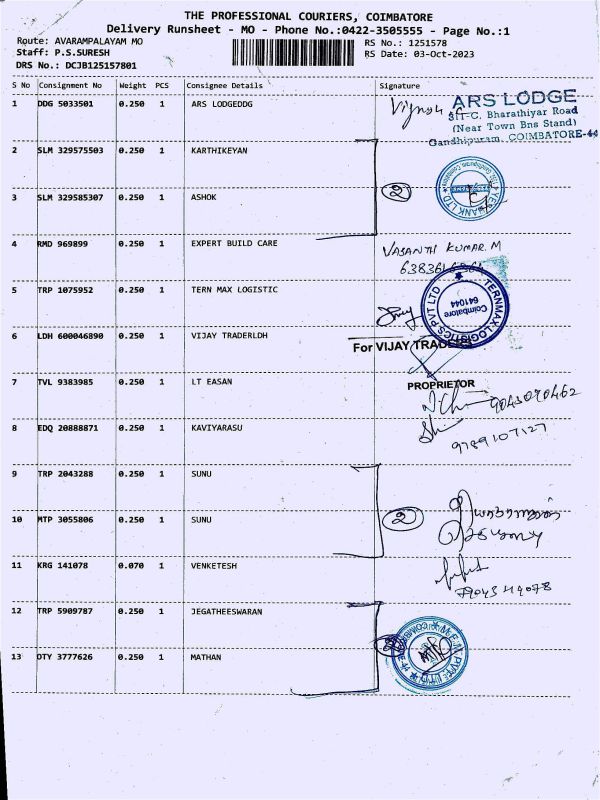 THE PROFESSIONAL COURIERS, COIMBATORE
Delivery Runsheet - MO - Phone No.:0422-3505555 - Page No.:1
Route: AVARAMPALAYAM MO RS No.: 1251578
Staff: P.S.SURESH RS Date: 03-Oct-2023
DRS No.: DCJB125157801
S No Consignment No Weight PCS Consignee Details Signature
1 DDG 5033501 0.250 1 ARS LODGEDDG
ARS LODGE
(Near Town Bns Stand)
Gandhipuram, COIMBATORE-44
2 SLM 329575503 0.250 1 KARTHIKEYAN
3 SLM 329585307 0.250 1 ASHOK 2
4 RMD 969899 0.250 1 EXPERT BUILD CARE VASANTH KUMAR. M
5 TRP 1075952 0.250 1 TERN MAX LOGISTIC
TERNMAX LOGISTICS PVT LTD
Coimbatore
641044
6 LDH 600046890 0.250 1 VIJAY TRADERLDH
For VIJAY
7 TVL 9383985 0.250 1 LT EASAN PROPRIETOR
9043090462
8 EDQ 20888871 0.250 1 KAVIYARASU
9789107127
9 TRP 2043288 0.250 1 SUNU
10 MTP 3055806 0.250 1 SUNU 2
11 KRG 141078 0.070 1 VENKETESH
12 TRP 5909787 0.250 1 JEGATHEESWARAN
13 OTY 3777626 0.250 1 MATHAN